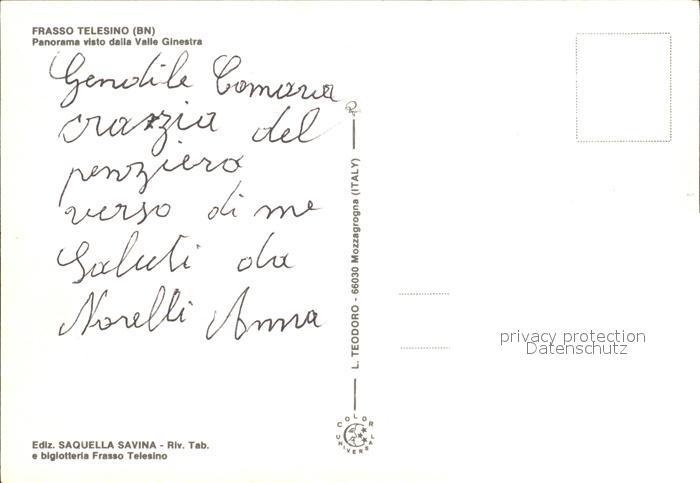 FRASSO TELESINO (BN)
Panorama visto dalla Valle Ginestra
Gendile Comara
crazzia del
penziero
verso di me
Saluti da
Norelli Anna
L. TEODORO - 66030 Mozzagrogna (ITALY)
COLOR
UNIVERSAL
privacy protection
Datenschutz
Ediz. SAQUELLA SAVINA - Riv. Tab.
e biglotteria Frasso Telesino